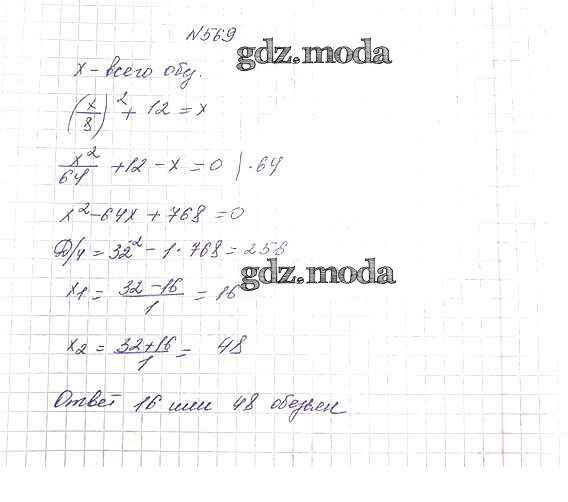 №569
gdz.moda
x - всего обез.
(x/8)² + 12 = x
x²/64 + 12 - x = 0 | · 64
x² - 64x + 768 = 0
D/4 = 32² - 1 · 768 = 256
gdz.moda
x₁ = (32 - 16)/1 = 16
x₂ = (32 + 16)/1 = 48
Ответ 16 или 48 обезьян